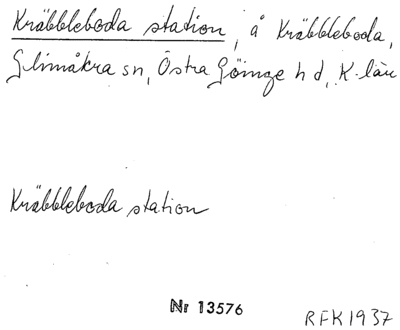 Kräbbleboda station, å Kräbbleboda,
Glimåkra sn, Östra Göinge hd, K-län
Kräbbleboda station
Nr 13576
RFK1937